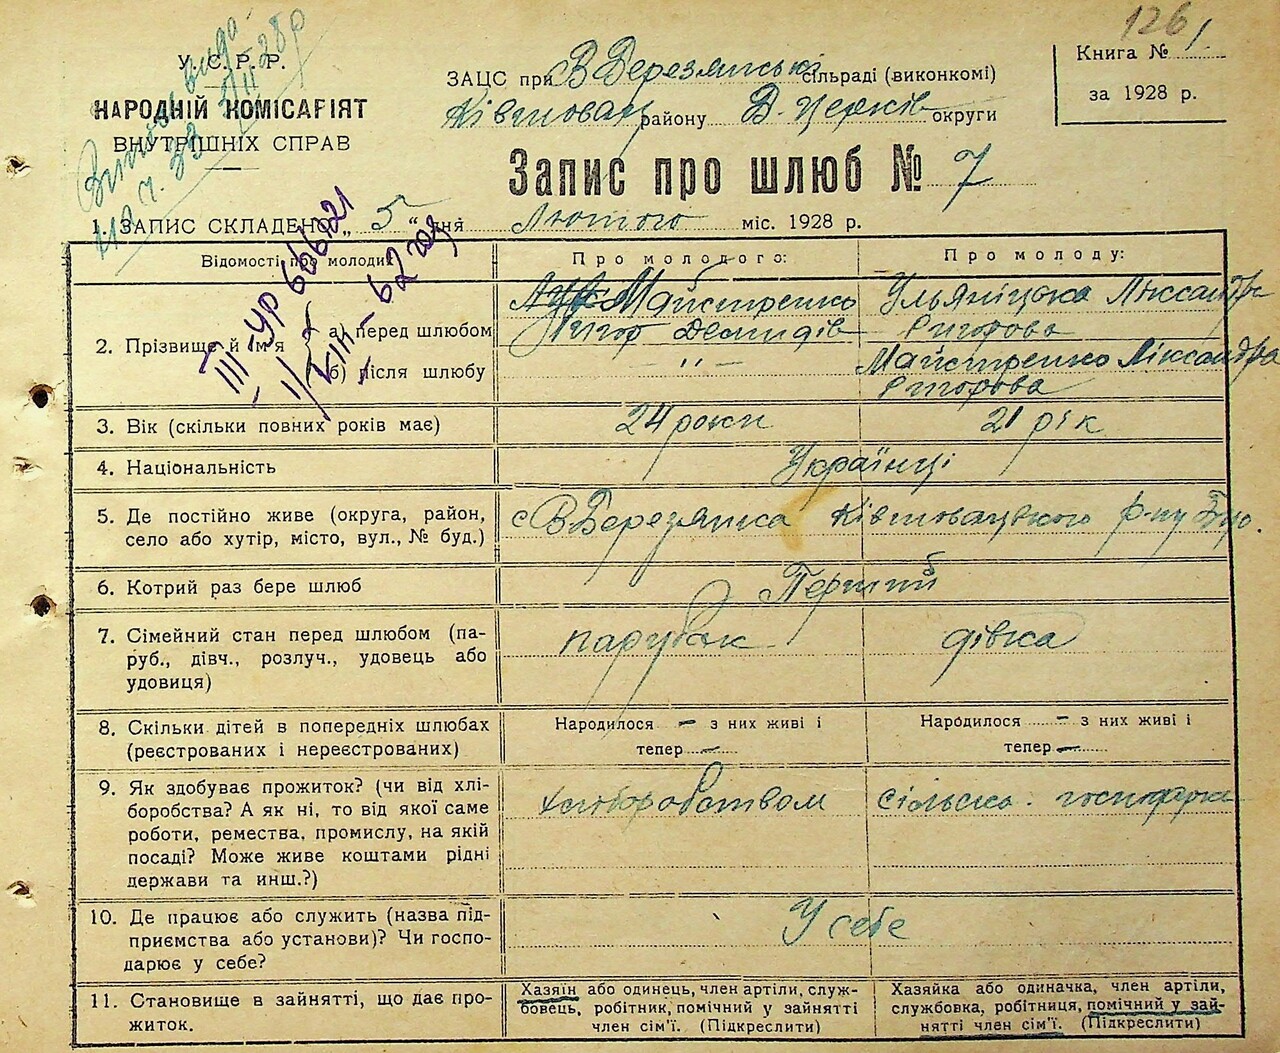 126
У. С. Р. Р.
НАРОДНІЙ КОМІСАРІЯТ
ВНУТРІШНІХ СПРАВ
ЗАЦС при В Березянські сільраді (виконкомі)
Ківшовац району Б. Церків округи
Книга № 1
за 1928 р.
Запис про шлюб № 7
1. ЗАПИС СКЛАДЕНО „ 5 " дня Лютого міс. 1928 р.
III УР 606721
Відомості про молодих
Про молодого:
Про молоду:
2. Прізвище й ім'я
а) перед шлюбом
б) після шлюбу
Майстренко
Григор Демидів
— „ —
Ульяніцька Ліксандра
Григорова
Майстренко Ліксандра
Григорова
3. Вік (скільки повних років має)
24 роки
21 рік
4. Національність
Українці
5. Де постійно живе (округа, район,
село або хутір, місто, вул., № буд.)
с В Березянка Ківшовацького р-ну
6. Котрий раз бере шлюб
Перший
7. Сімейний стан перед шлюбом (па-
руб., дівч., розлуч., удовець або
удовиця)
парубок
дівка
8. Скільки дітей в попередніх шлюбах
(реєстрованих і нереєстрованих)
Народилося — з них живі і
тепер —
Народилося — з них живі і
тепер —
9. Як здобуває прожиток? (чи від хлі-
боробства? А як ні, то від якої саме
роботи, ремества, промислу, на якій
посаді? Може живе коштами рідні
держави та инш.?)
хліборобством
сільско. господарка
10. Де працює або служить (назва під-
приємства або установи)? Чи госпо-
дарює у себе?
У себе
11. Становище в зайнятті, що дає про-
житок.
Хазяїн або одинець, член артіли, служ-
бовець, робітник, помічний у зайнятті
член сім'ї. (Підкреслити)
Хазяйка або одиначка, член артіли,
службовка, робітниця, помічний у зай-
нятті член сім'ї. (Підкреслити)